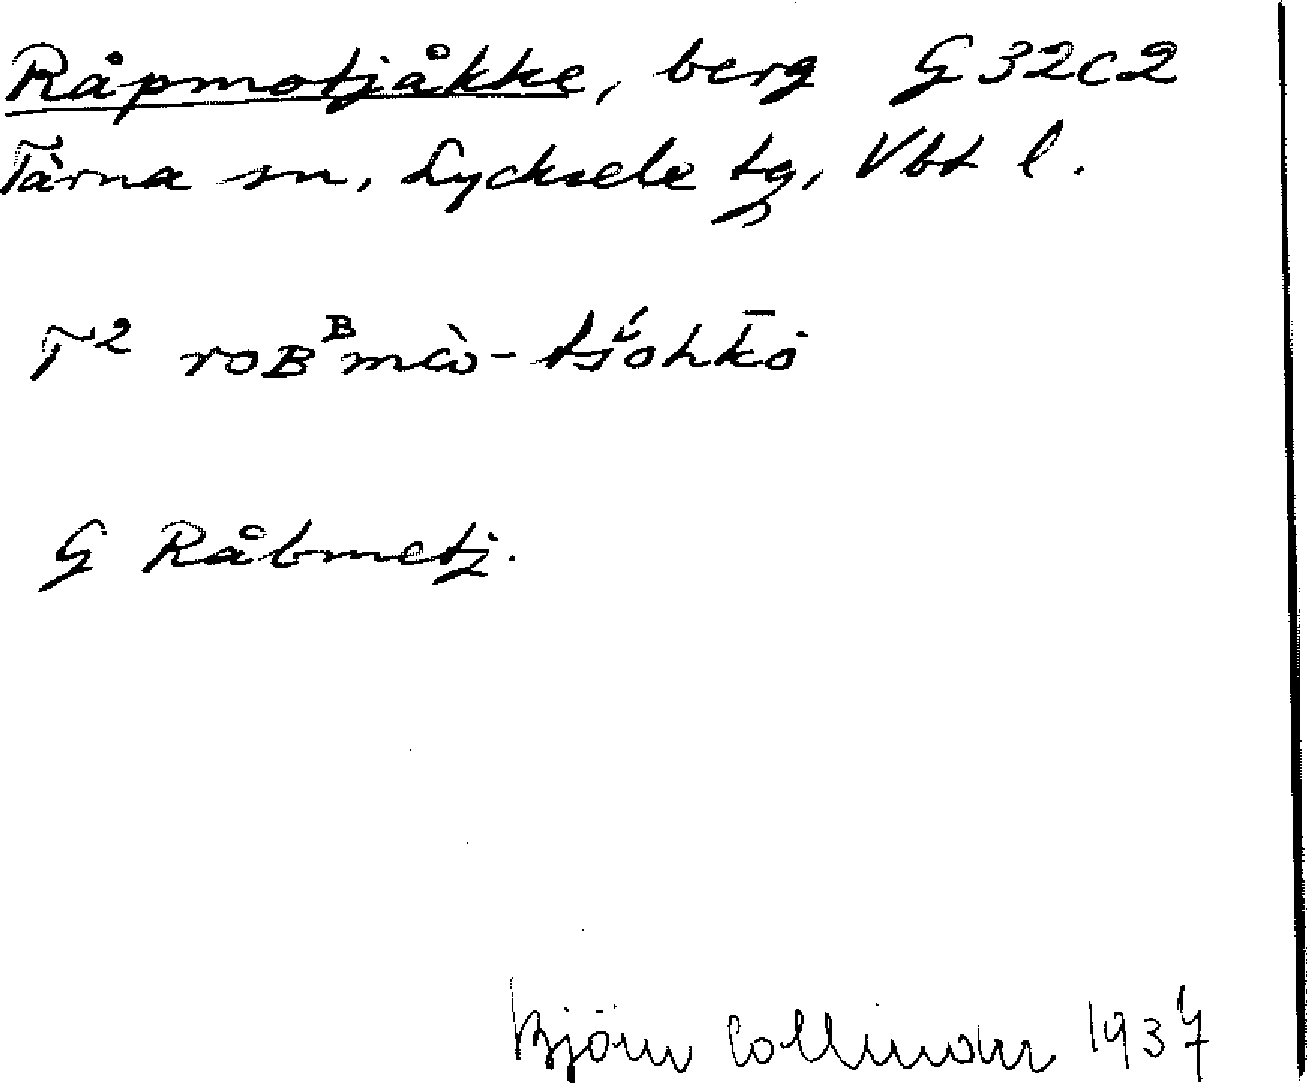 Råpmotjåkke, berg G32c2
Tärna sn, Lycksele tg, Vbt l.
T² roBᴮmὼ-tśo̔hk̄ȯ
G Råbmetj.
Björn Collinder 1937